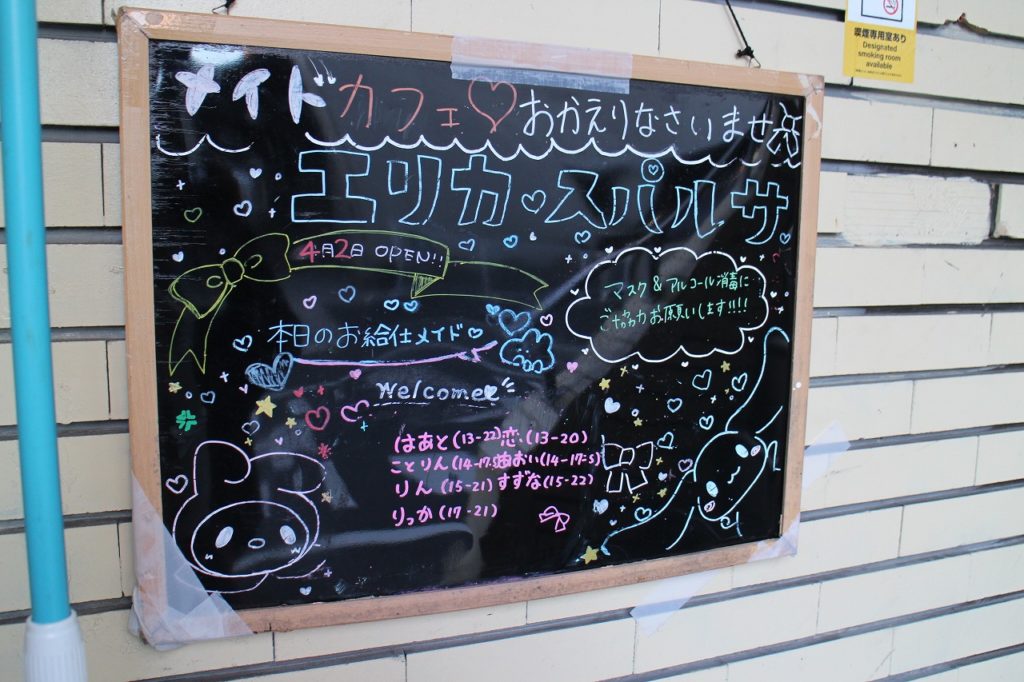 喫煙専用室あり
Designated
smoking room
available
メイドカフェ♡おかえりなさいませ
エリカ・スパルサ
4月2日 OPEN!!
マスク&アルコール消毒に
ご協力お願いします!!!!
本日のお給仕メイド♡
Welcome
はあと(13-22)恋(13-20)
ことりん(14-17:5)おい(14-17:5)
りん(15-21)すずな(15-22)
りっか(17-21)